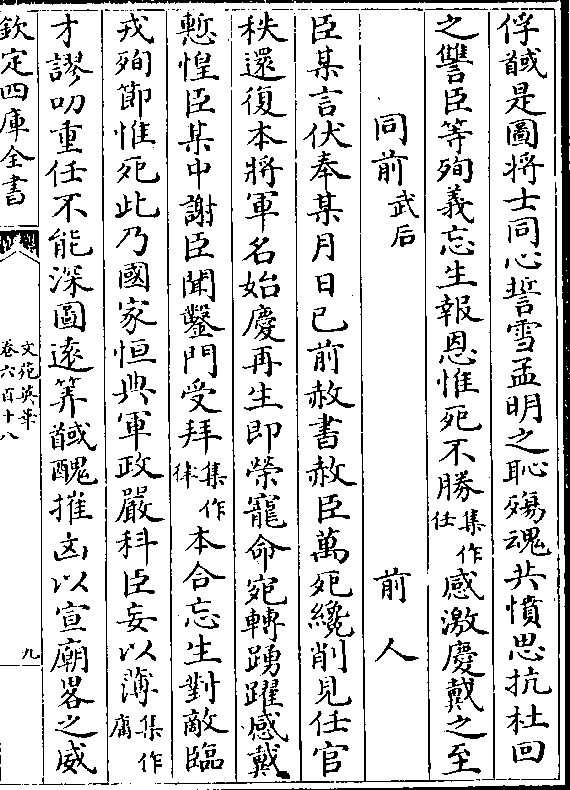 俘馘是圖將士同心誓雪孟明之恥殤魂共憤思抗杜回
之讐臣等殉義忘生報恩惟死不勝集作任感激慶戴之至
同前武后 前人
臣某言伏奉某月日已前赦書赦臣萬死纔削見任官
秩還復本將軍名始慶再生即榮寵命宛轉踴躍感戴
慙惶臣某中謝臣聞鑿門受拜集作律本合忘生對敵臨
戎殉節惟死此乃國家恒典軍政嚴科臣妄以薄集作庸
才謬叨重任不能深圖遠筭馘醜摧凶以宣廟畧之威
欽定四庫全書
文苑英華
卷六百十八
九